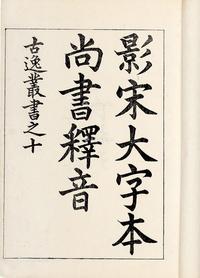 影宋大字本
尚書釋音
古逸叢書之十